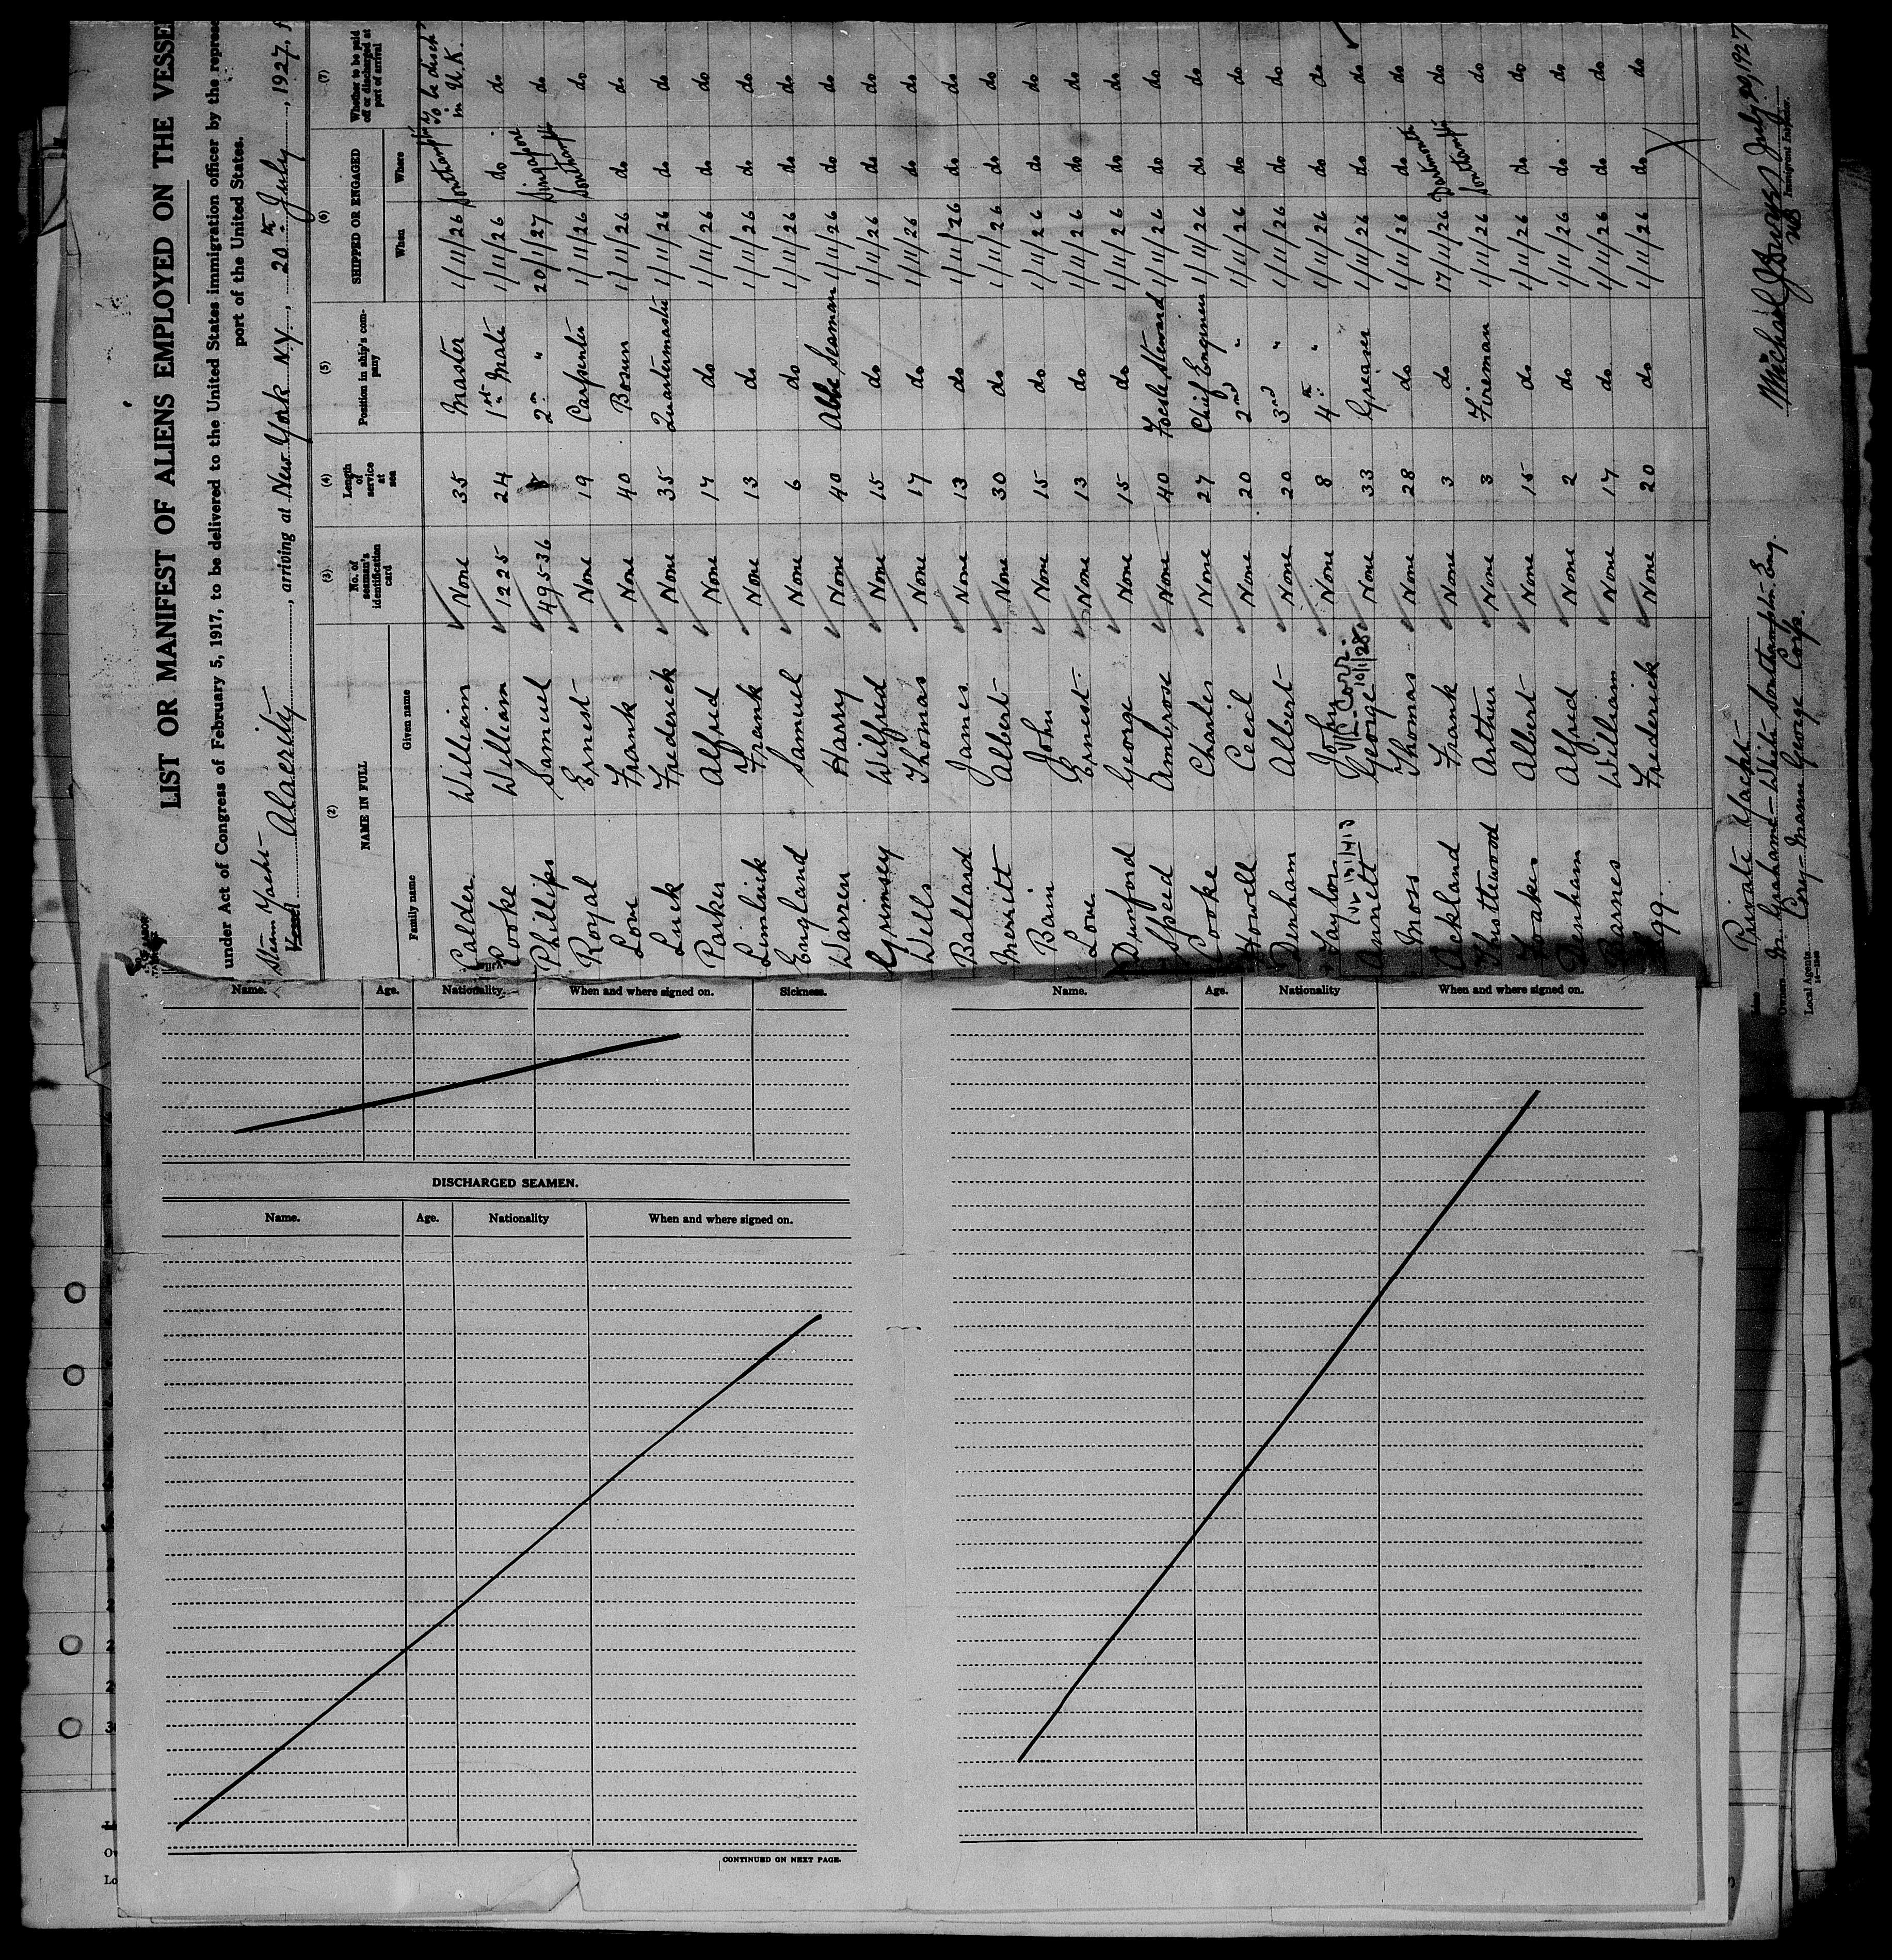 LIST OR MANIFEST OF ALIENS EMPLOYED ON THE VESSE
under Act of Congress of February 5, 1917, to be delivered to the United States immigration officer by the repres
port of the United States.
Steam Yacht
Vessel Alacrity, arriving at New York N.Y., 20th July, 1927, f
(2) (3) (4) (5) (6) (7)
NAME IN FULL No. of seaman's identification card Length of service at sea Position in ship's company SHIPPED OR ENGAGED Whether to be paid off or discharged at port of arrival
Family name Given name When Where
Calder William None 35 Master 1/11/26 Southampton To be disch in U.K.
Cooke William 1225 24 1st Mate 1/11/26 do do
Phillips Samuel 49536 8 2n " 20/1/27 Singapore do
Royal Ernest None 19 Carpenter 1/11/26 Southampton do
Love Frank None 40 Bosun 1/11/26 do do
Luck Frederick None 35 Quartermaster 1/11/26 do do
Parker Alfred None 17 do 1/11/26 do do
Liminick Frank None 13 do 1/11/26 do do
England Samuel None 6 do 1/11/26 do do
Warren Harry None 40 Able Seaman 1/11/26 do do
Grimsey Wilfred None 15 do 1/11/26 do do
Wells Thomas None 17 do 1/11/26 do do
Ballard James None 13 do 1/11/26 do do
Merritt Albert None 30 do 1/11/26 do do
Bain John None 15 do 1/11/26 do do
Love Ernest None 13 do 1/11/26 do do
Durnford George None 15 do 1/11/26 do do
Speed Ambrose None 40 Focsle Steward 1/11/26 do do
Cooke Charles None 27 Chief Engineer 1/11/26 do do
Howell Cecil None 20 2nd " 1/11/26 do do
Denham Albert None 20 3rd " 1/11/26 do do
Taylor John None 8 4th " 1/11/26 do do
10/1/28
Annett George None 33 Greaser 1/11/26 do do
Moss Thomas None 28 do 1/11/26 do do
Ackland Frank None 3 do 17/11/26 Dartmouth do
Thistlewood Arthur None 3 Fireman 1/11/26 Southampton do
Foakes Albert None 15 do 1/11/26 do do
Denham Alfred None 2 do 1/11/26 do do
Barnes William None 17 do 1/11/26 do do
Frederick None 20 do 1/11/26 do do
Line Private Yacht
Owners M. Grahame-White Southampton Eng.
Local Agents Cory-Mann George Corps.
14-1240
Michael J July 20, 1927
Immigrant Inspector.
Name. Age. Nationality When and where signed on. Sickness.
DISCHARGED SEAMEN.
Name. Age. Nationality When and where signed on.
CONTINUED ON NEXT PAGE.
Name. Age. Nationality When and where signed on.